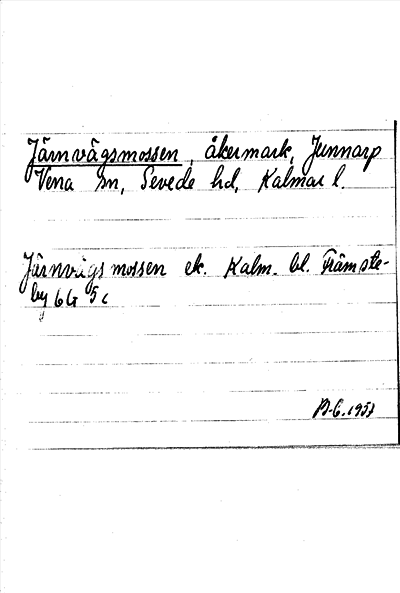 Järnvägsmossen, åkermark, Junnarp
Vena sn, Sevede hd, Kalmar l.
Järnvägsmossen ek. Kalm. bl. Främste-
by 6G 5c
B-G. 1957